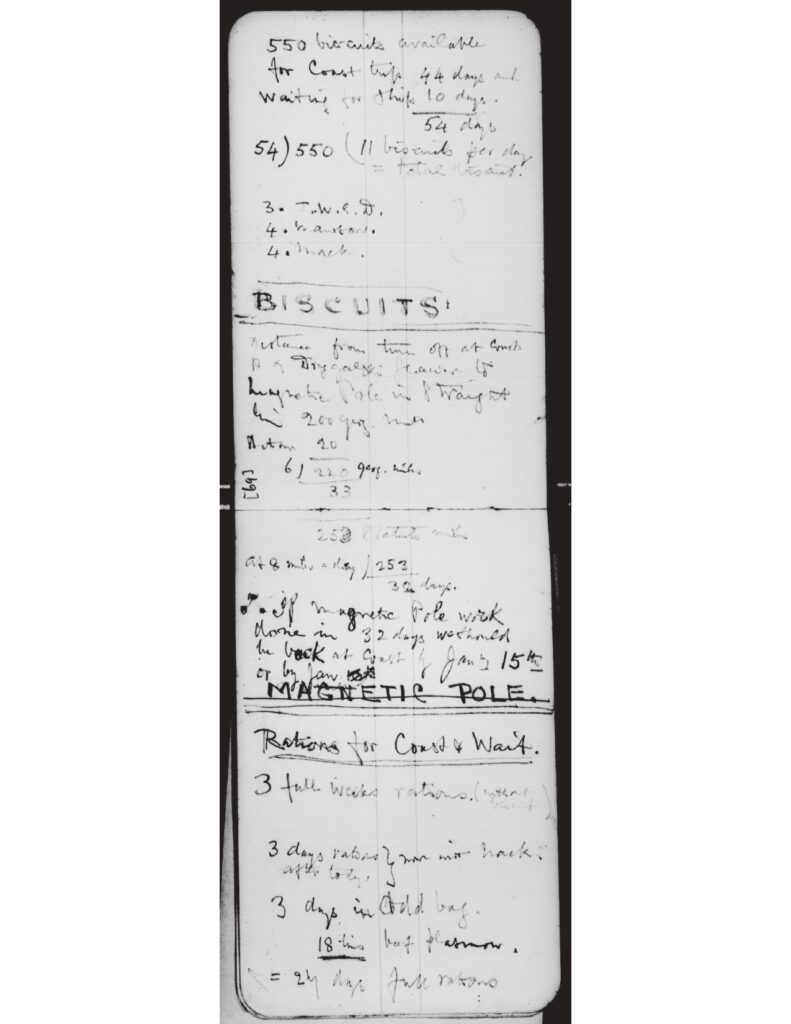 550 biscuits available
for Coast trip 44 days and
Waiting for ship 10 days.
54 days
54) 550 (11 biscuits per day
= total biscuit.
3. T.W.E.D.
4. Mawson.
4. Mack.
BISCUITS:
Distance from turn off at Coast
N of Drygalski Glacier to
Magnetic Pole in Straight
line 200 geog. miles
20
6) 220 geog. miles
33
[69]
253 Statute miles
At 8 miles a day ) 253
32 days.
If Magnetic Pole work
done in 32 days we should
be back at Coast by Jan'y 15th
or by Jan.
MAGNETIC POLE.
Rations for Coast & Wait.
3 full weeks rations. (without biscuit)
3 days rations } now in Mack:
after today.
3 days in Odd bag.
18 tins beef plasmon.
= 27 days full rations